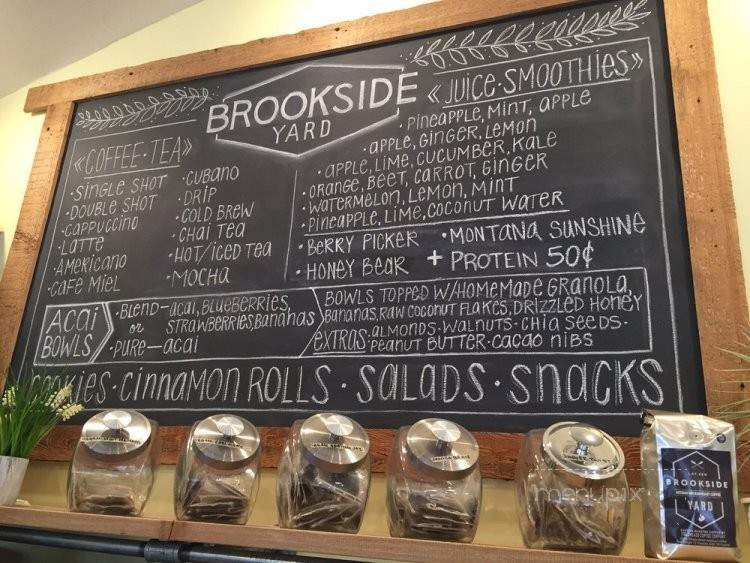 BROOKSIDE
YARD
«COFFEE·TEA»
·SINGLE SHOT
·DOUBLE SHOT
·CAPPUCCINO
·LATTE
·AMERICANO
·CAFE MIEL
·CUBANO
·DRIP
·COLD BREW
·CHAI TEA
·HOT/ICED TEA
·MOCHA
«JUICE·SMOOTHIES»
·PINEAPPLE, MINT, APPLE
·APPLE, GINGER, LEMON
·APPLE, LIME, CUCUMBER, KALE
·ORANGE, BEET, CARROT, GINGER
·WATERMELON, LEMON, MINT
·PINEAPPLE, LIME, COCONUT WATER
·BERRY PICKER ·MONTANA SUNSHINE
·HONEY BEAR + PROTEIN 50¢
ACAI
BOWLS
·BLEND—ACAI, BLUEBERRIES,
or STRAWBERRIES, BANANAS
·PURE—ACAI
BOWLS TOPPED W/HOMEMADE GRANOLA,
BANANAS, RAW COCONUT FLAKES, DRIZZLED HONEY
EXTRAS: ALMONDS·WALNUTS·CHIA SEEDS·
PEANUT BUTTER·CACAO NIBS
COOKIES·CINNAMON ROLLS·SALADS·SNACKS
BROOKSIDE
YARD
menupix